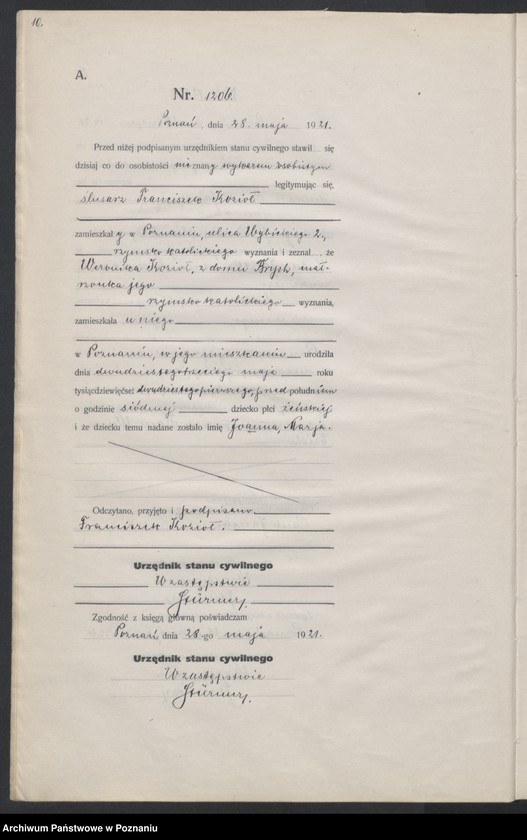 10.
A.
Nr. 1206.
Poznań, dnia 28. maja 1921.
Przed niżej podpisanym urzędnikiem stanu cywilnego stawił się
dzisiaj co do osobistości nieznany wykazem osobistym
legitymując się,
ślusarz Franciszek Kozioł
zamieszkały w Poznaniu, ulica Wybickiego 2.,
rzymsko katolickiego wyznania i zeznał, że
Weronika Kozioł, z domu mał-
żonka jego
rzymsko katolickiego wyznania,
zamieszkała u niego
w Poznaniu, w jego mieszkaniu urodziła
dnia dwudziestegotrzeciego maja roku
tysiącdziewięćset dwudziestegopierwszego, przed południem
o godzinie siódmej dziecko płci żeńskiej
i że dziecku temu nadane zostało imię Joanna, Marja.
Odczytano, przyjęto i podpisano
Franciszek Kozioł.
Urzędnik stanu cywilnego
W zastępstwie
Stürmer.
Zgodność z księgą główną poświadczam
Poznań dnia 28-go maja 1921.
Urzędnik stanu cywilnego
W zastępstwie
Stürmer.
Archiwum Państwowe w Poznaniu